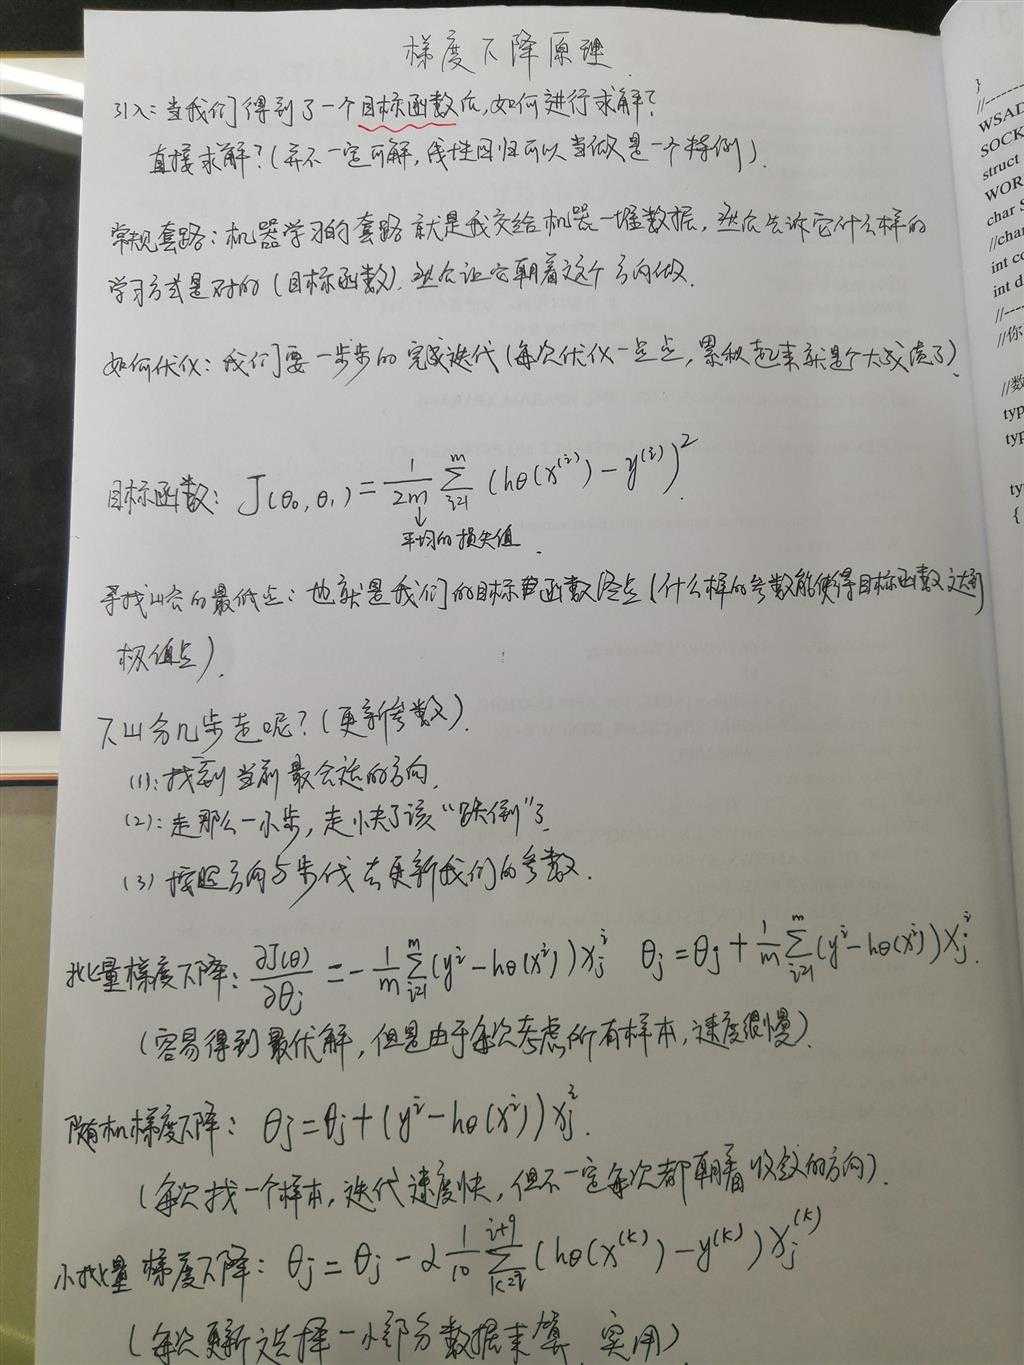 梯度下降原理
引入:当我们得到了一个目标函数后,如何进行求解?
直接求解?(并不一定可解,线性回归可以当做是一个特例).
常规套路:机器学习的套路就是我交给机器一堆数据,然后告诉它什么样的
学习方式是对的(目标函数),然后让它朝着这个方向做.
如何优化:我们要一步步的完成迭代(每次优化一点点,累积起来就是个大成绩了).
目标函数: J(θ₀,θ₁) = 1/2m Σᵢ₌₁ᵐ (hθ(x⁽ⁱ⁾) − y⁽ⁱ⁾)².
↓
平均的损失值.
寻找山谷的最低点:也就是我们的目标函数终点(什么样的参数能使得目标函数达到
极值点).
下山分几步走呢?(更新参数).
(1):找到当前最合适的方向.
(2):走那么一小步,走快了该“跌倒”了.
(3)按照方向与步伐去更新我们的参数.
批量梯度下降: ∂J(θ)/∂θj = −1/m Σᵢ₌₁ᵐ (yⁱ − hθ(xⁱ)) xjⁱ θj = θj + 1/m Σᵢ₌₁ᵐ (yⁱ − hθ(xⁱ)) xjⁱ.
(容易得到最优解,但是由于每次考虑所有样本,速度很慢).
随机梯度下降: θj = θj + (yⁱ − hθ(xⁱ)) xjⁱ.
(每次找一个样本,迭代速度快,但不一定每次都朝着收敛的方向).
小批量梯度下降: θj = θj − α 1/10 Σₖ₌ᵢⁱ⁺⁹ (hθ(x⁽ᵏ⁾) − y⁽ᵏ⁾) xj⁽ᵏ⁾
(每次更新选择一小部分数据来算,实用)
}
//-----
WSAD
SOCK
struct
WOR
char S
//char
int co
int d
//----
//你
//数
typ
typ
ty
{